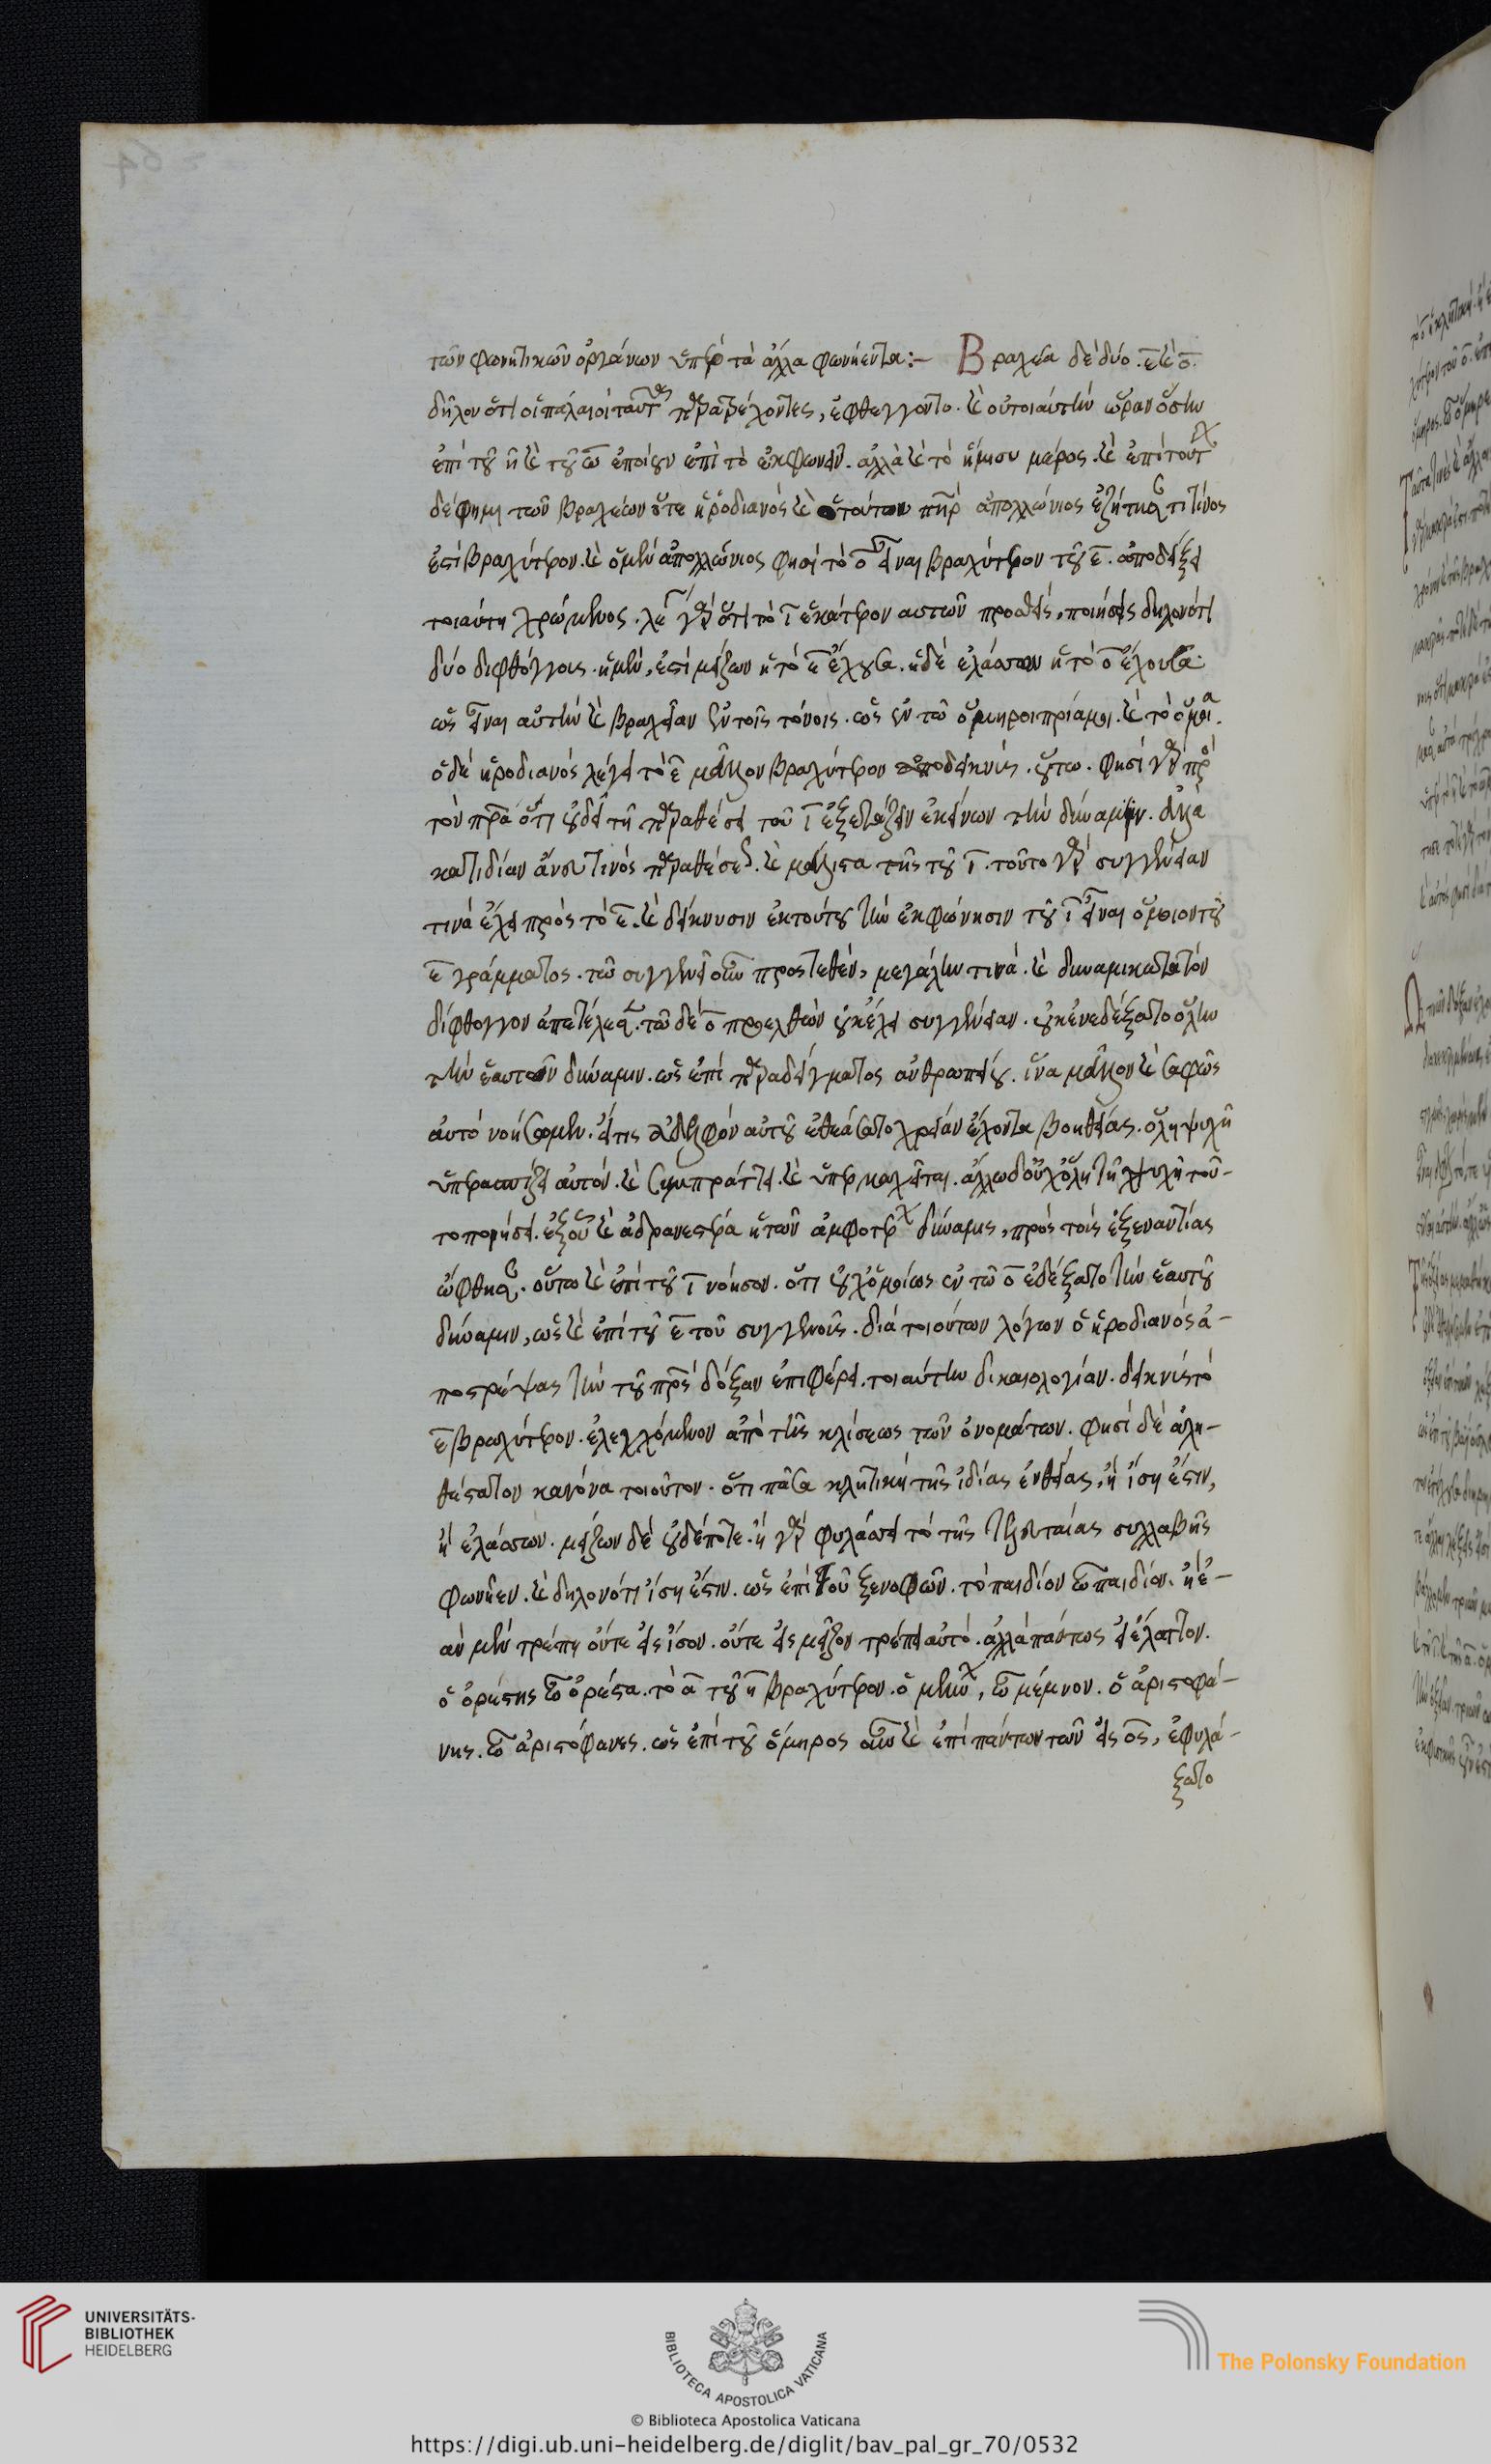 τῶν φωνητικῶν ὀργάνων ὑπὲρ τὰ ἄλλα φωνήεντα:– Βραχέα δὲ δύο. ε̄ καὶ ο̄.
δῆλον ὅτι οἱ παλαιοὶ παρατρέχοντες, ἐφθέγγοντο. καὶ οὐ τοιαύτην ὥραν ὅσην
ἐπὶ τοῦ η̄ καὶ τοῦ ω̄ ἐποίουν ἐπὶ τὸ ἐκφωνεῖν. ἀλλὰ καὶ τὸ ἥμισυ μέρος. καὶ ἐπὶ τούτ
δέ φημι τῶν βραχέων ὅ τε ἡρωδιανὸς καὶ ὁ τούτου πὴρ ἀπολλώνιος ἐζήτησαν τί τίνος
ἐστὶ βραχύτερον. καὶ ὁ μὲν ἀπολλώνιος φησὶ τὸ ο̄ εἶναι βραχύτερον τοῦ ε̄. ἀποδείξει
τοιαύτῃ χρώμενος. λέγει γὰρ ὅτι τὸ ῑ ἑκάτερον αὐτῶν προσθεὶς, ποιήσεις δηλονότι
δύο διφθόγγους. ἡ μὲν, ἐστὶ μείζων ἡ τὸ ε̄ ἔχουσα. ἡ δὲ ἐλάσσων ἡ τὸ ο̄ ἔχουσα.
ὡς εἶναι αὐτὴν καὶ βραχεῖαν ἐν τοῖς τόνοις. ὡς ἐν τῶ ὅμηροι πρίαμοι. καὶ τὸ
ὁ δὲ ἡρωδιανὸς λέγει τὸ ε̄ μᾶλλον βραχύτερον ἀποδεικνὺς. οὕτω. φησὶ γὰρ πρὸ
τὸν πρα ὅτι οὐ δεῖ τῆ παραθέσει τοῦ ῑ ἐξετάζειν ἐκείνων τὴν δύναμιν. ἀλλὰ
κατιδίαν ἄνευ τινὸς παραθέσεως. καὶ μάλιστα τῆς τοῦ ῑ. τοῦτο γὰρ συγγένειαν
τινὰ ἔχει πρὸς τὸ ε̄. καὶ δείκνυσιν ἐκ τούτου τὴν ἐκφώνησιν τοῦ ῑ εἶναι ὅμοιον τοῦ
ε̄ γράμματος. τῶ συγγενεῖ οὖν προστεθὲν, μεγάλην τινὰ. καὶ δυναμικωτάτην
δίφθογγον ἀπετέλεσε. τῶ δὲ ο̄ προελθὼν οὐκ ἔχει συγγένειαν. οὐκ ἐνεδέξατο ὅλην
τὴν ἑαυτοῦ δύναμιν. ὡς ἐπὶ παραδείγματος ἀνθρωπείου. ἵνα μᾶλλον καὶ σαφῶς
αὐτὸ νοήσωμεν. εἴ τις ἀδελφὸν αὐτοῦ ἐθεάσατο χρείαν ἔχοντα βοηθείας. ὅλη ψυχῆ
ὑπερασπίζει αὐτὸν. καὶ συμπράττει. καὶ ὑπερκαλεῖται. ἄλλω δ' οὐχ ὅλη τῆ ψυχῆ τοῦ-
το ποιήσει. ἐξ οὗ καὶ ἀδρανεστέρα ἡ τῶν ἀμφοτέρων δύναμις, πρὸς τοὺς ἐξεναντίας
ὤφθησαν. οὕτω καὶ ἐπὶ τοῦ ῑ νόησον. ὅτι οὐχ ὁμοίως ἐν τῶ ο̄ ἐδέξατο τὴν ἑαυτοῦ
δύναμιν, ὡς καὶ ἐπὶ τοῦ ε̄ τοῦ συγγενοῦς. διὰ τοιούτων λόγων ὁ ἡρωδιανὸς ἀ-
ποστρέψας τὴν τοῦ πρς δόξαν ἐπιφέρει. τοιαύτην δικαιολογίαν. δεικνὺς τὸ
ε̄ βραχύτερον. ἐλεγχόμενον ἀπὸ τῆς κλίσεως τῶν ὀνομάτων. φησὶ δὲ ἀλη-
θέστατον κανόνα τοιοῦτον. ὅτι πᾶσα κλητικὴ τῆς ἰδίας εὐθείας, ἢ ἴση ἐστὶν,
ἢ ἐλάσσων. μείζων δὲ οὐδέποτε. ἢ γὰρ φυλάσσει τὸ τῆς τελευταίας συλλαβῆς
φωνῆεν. καὶ δηλονότι ἴση ἐστὶν. ὡς ἐπὶ τοῦ ξενοφῶν. τὸ παιδίον ὦ παιδίον. ἢ ἐ-
ὰν μὲν τρέπη οὔτε εἰς ἴσον. οὔτε εἰς μεῖζον τρέπει αὐτὸ. ἀλλὰ πάντως εἰς ἔλαττον.
ὁ ὀρέστης ὦ ὀρέστα. τὸ ᾱ τοῦ η̄ βραχύτερον. ὁ μέμνων, ὦ μέμνον. ὁ ἀριστοφά-
νης. ὦ ἀριστόφανες. ὡς ἐπὶ τοῦ ὅμηρος οὖν καὶ ἐπὶ πάντων τῶν εἰς ος, ἐφυλά-
ξατο
UNIVERSITÄTS-
BIBLIOTHEK
HEIDELBERG
BIBLIOTECA APOSTOLICA VATICANA
The Polonsky Foundation
© Biblioteca Apostolica Vaticana
https://digi.ub.uni-heidelberg.de/diglit/bav_pal_gr_70/0532